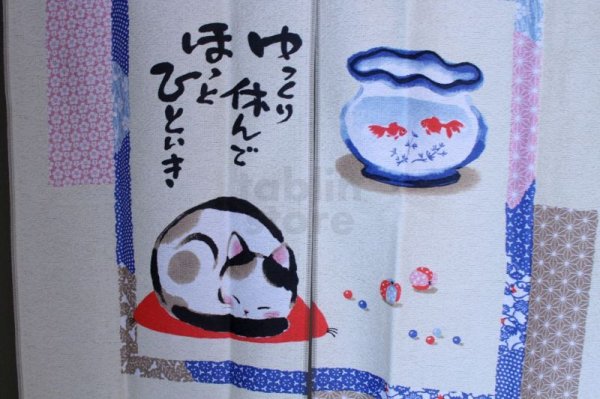 ゆっくり
休んで
ほっと
ひといき
tablin
store